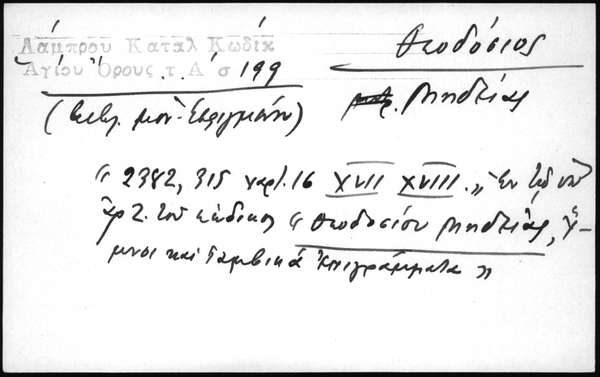 Λάμπρου Καταλ Κωδίκ
Ἁγίου Ὄρους τ. Α΄ σ 199
Θεοδόσιος
Μηδείας
(Βιβλ. μον. Ἐσφιγμένου)
"2382, 315 χαρτ. 16 XVII XVIII. „ Ἐν τῷ ὑπ'
ἀρ 2. τοῦ κώδικος "Θεοδοσίου Μηδείας, ὕ-
μνοι καὶ ἰαμβικὰ ἐπιγράμματα"